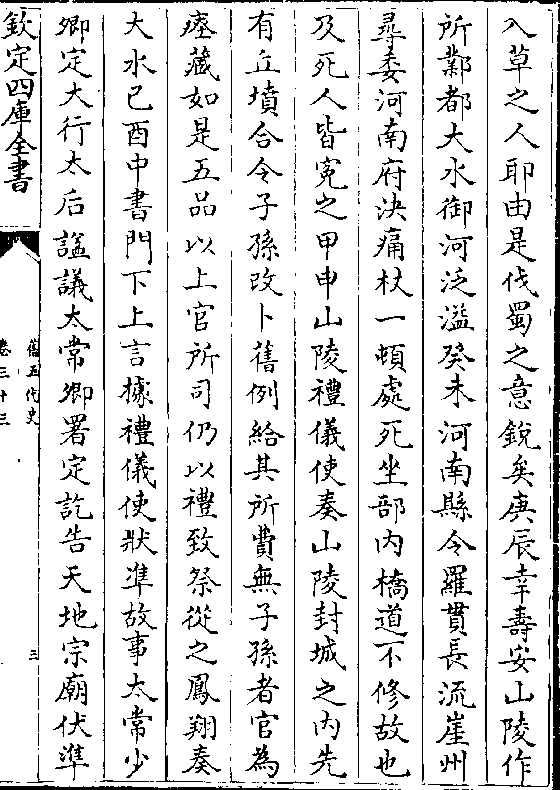 入草之人耶由是伐蜀之意鋭矣庚辰幸壽安山陵作
所鄴都大水御河泛溢癸未河南縣令羅貫長流崖州
尋委河南府決痛杖一頓處死坐部内橋道不修故也
及死人皆寃之甲申山陵禮儀使奏山陵封城之内先
有丘墳合令子孫改卜舊例給其所費無子孫者官為
瘞藏如是五品以上官所司仍以禮致祭從之鳳翔奏
大水己酉中書門下上言據禮儀使狀準故事太常少
卿定大行太后諡議太常卿署定訖告天地宗廟伏準
欽定四庫全書
舊五代史
卷三十三
三